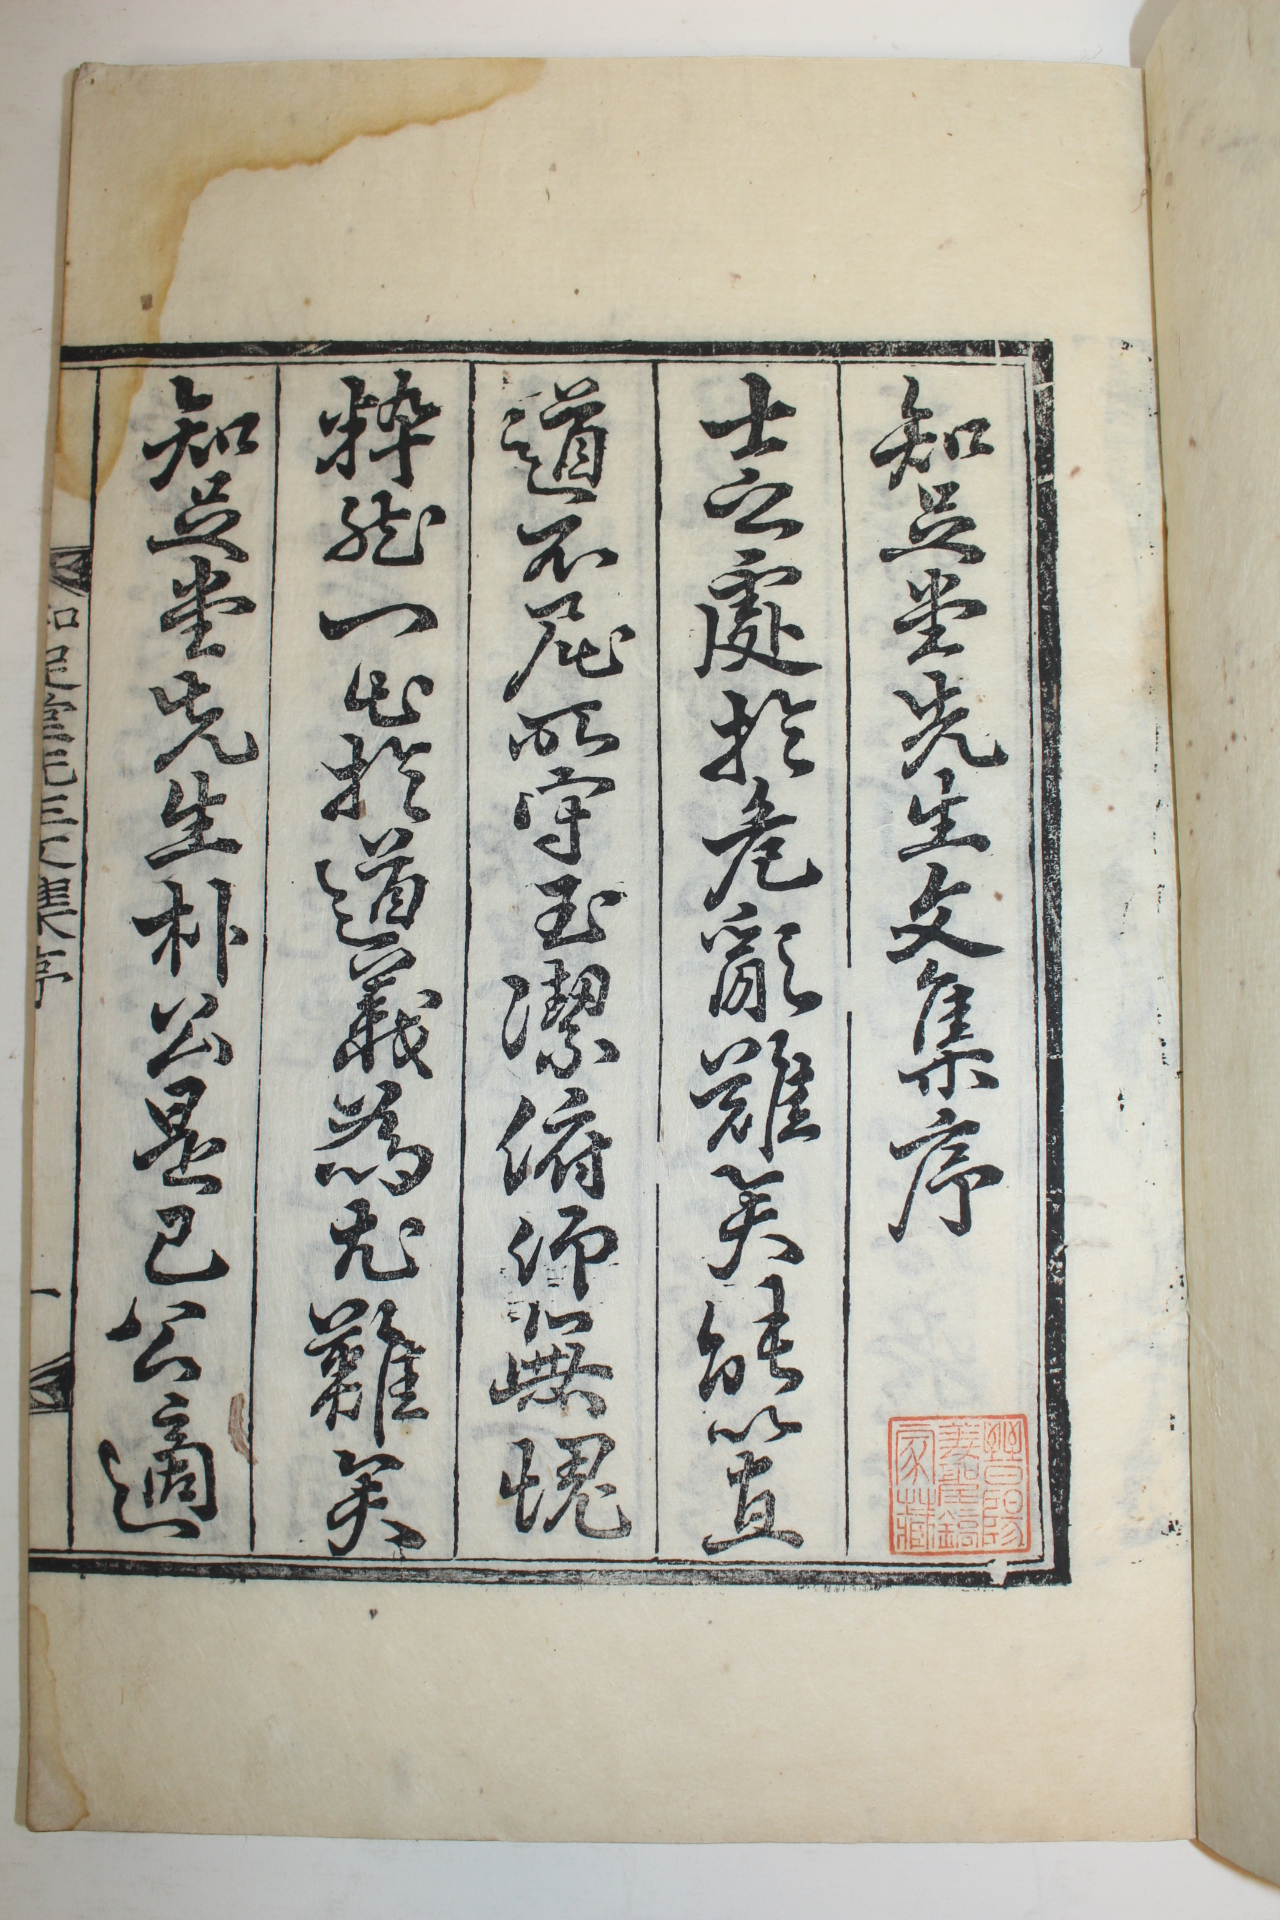 知足堂先生文集序
士之處於危亂難矣能以直
道不屈所守玉潔俯仰無愧
粹然一出於道義爲尤難矣
知足堂先生朴公是已公適
知足堂先生文集序
一
晉陽
姜
鎬
家藏